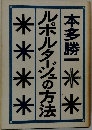 本多勝一
ルポルタージュの方法